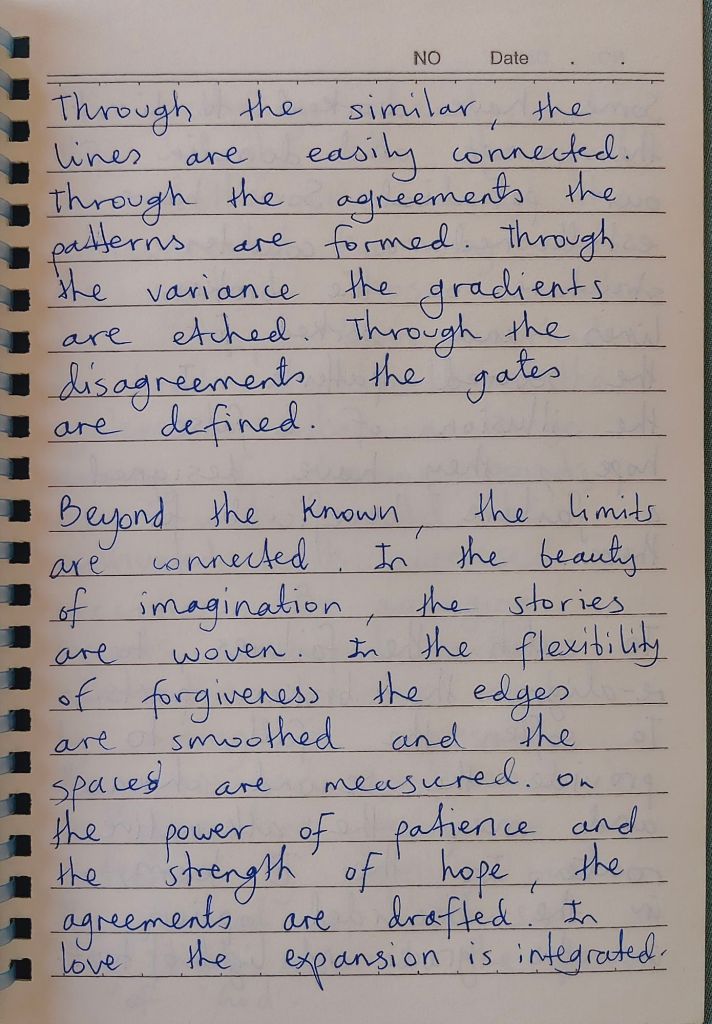 NO Date . .
Through the similar, the
lines are easily connected.
Through the agreements the
patterns are formed. Through
the variance the gradients
are etched. Through the
disagreements the gates
are defined.
Beyond the known, the limits
are connected. In the beauty
of imagination, the stories
are woven. In the flexibility
of forgiveness the edges
are smoothed and the
spaces are measured. On
the power of patience and
the strength of hope, the
agreements are drafted. In
love the expansion is integrated.